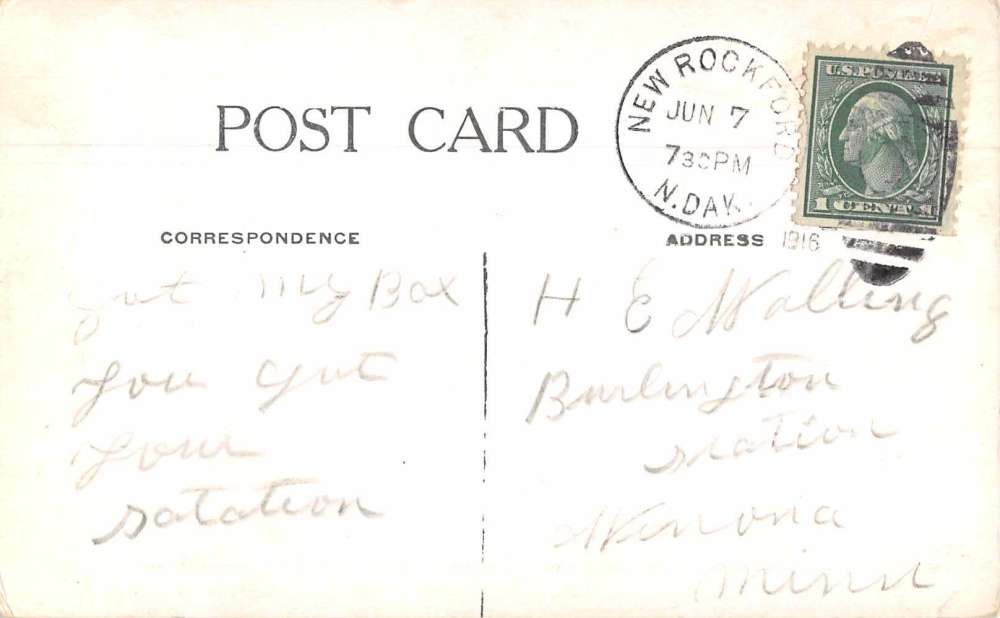 POST CARD
NEW ROCKFORD
JUN 7
730PM
N.DAK.
1916
U.S. POSTAGE
1 CENT 1
CORRESPONDENCE
ADDRESS
gut My Box
you gut
your
satation
H E Walling
Burlington
station
Winona
Minn